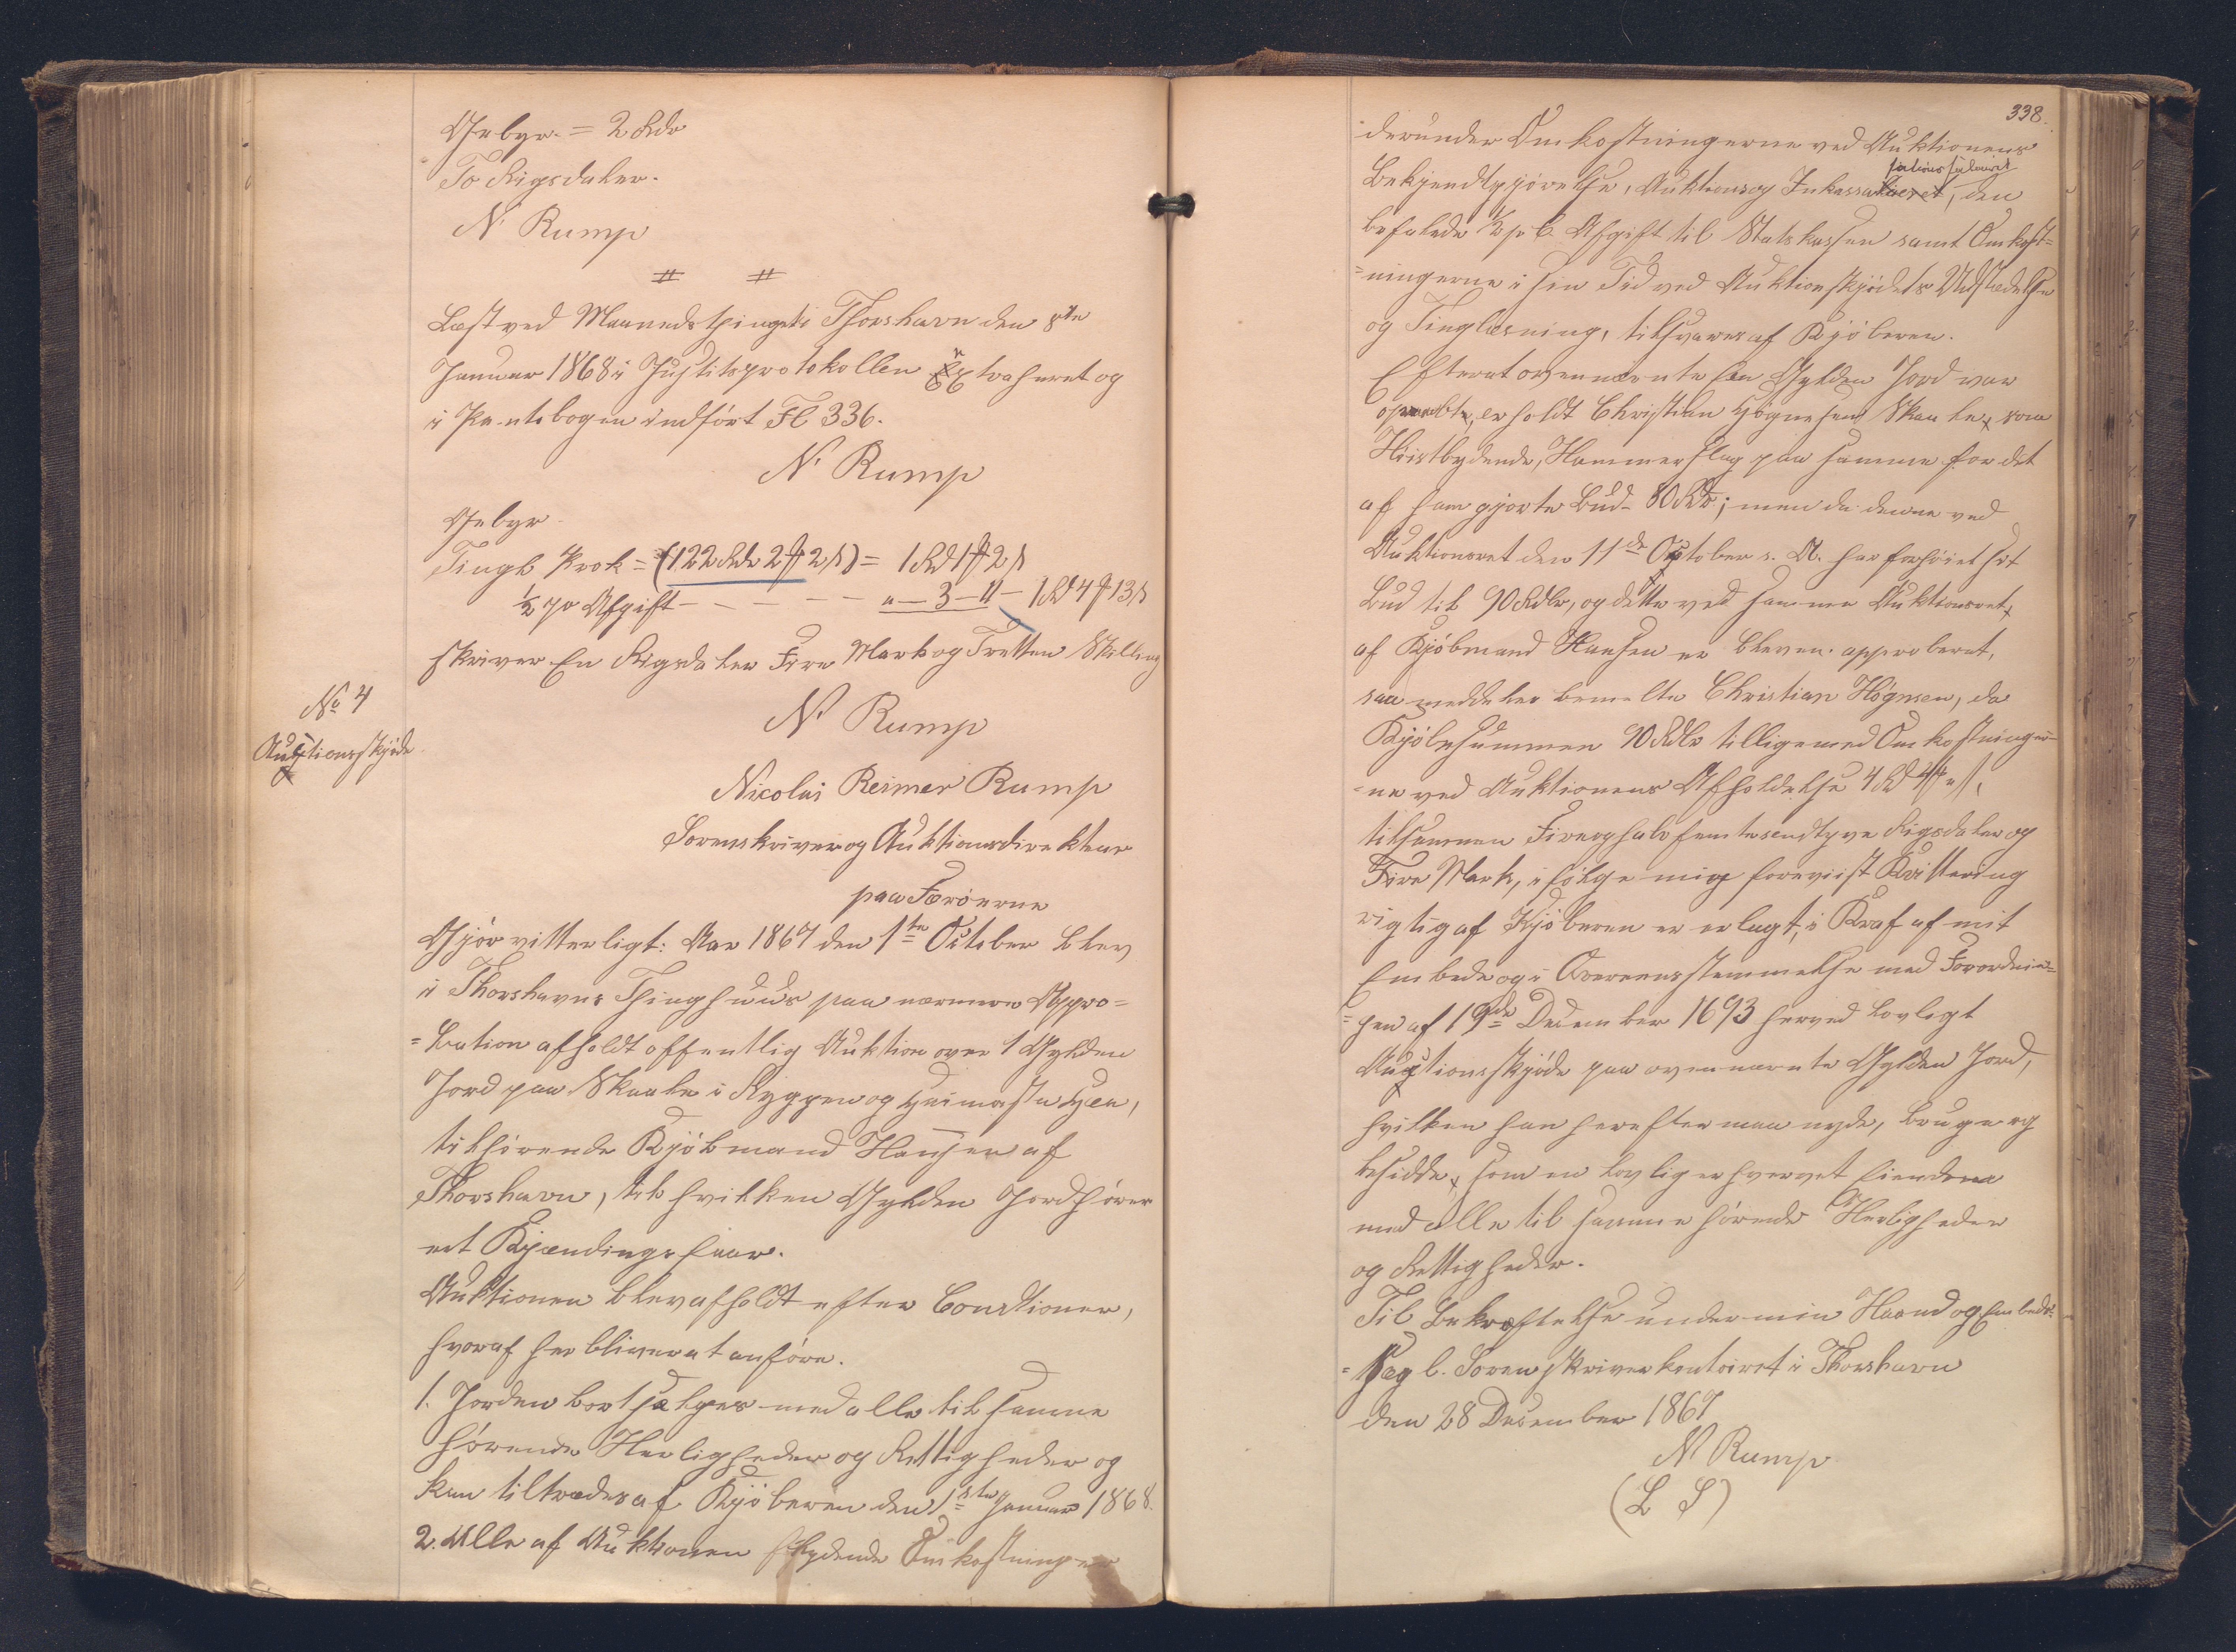 Gebyr. = 2 Rdr
To Rigsdaler.
N Rump
Læst ved Maanedsthinget i Thorshavn den 8de
Januar 1868 i Justitsprotokollen Extraheret og
i Pantebogen indført Fl 336.
N Rump
Gebyr
Tingl Prok = (122 Rdr 2 ꝳ 2 s) = 1 Rd 1 ꝳ 2 s
½ po Afgift - - - - - " - 3 - 11 - 1 Rd 4 ꝳ 13 s
skriver En Rigsdaler Fire Mark og Tretten Skilling
N Rump
No 4
Auctionsskjöde
Nicolai Reimer Rump
Sorenskriver og Auktionsdirekteur
paa Færöerne
Gjör vitterligt: Aar 1867 den 1ste October blev
i Thorshavns Thinghuus paa nærmere Appro=
=bation afholdt offentlig Auktion over 1 Gylden
Jord paa Skaale i Ryggen og Heimasta Hæa,
tilhörende Kjöbmand Hansen af
Thorshavn, til hvilken Gylden Jord hörer
et Kjændingsfaar.
Auktionen blev afholdt efter Conditioner,
hvoraf her bliver at anföre.
1. Jorden bortsælges med alle til samme
hörende Herligheder og Rettigheder og
kan tiltrædes af Kjöberen den 1ste Januar 1868.
2. Alle af Auktionen flydende Omkostninger
338.
derunder Omkostningerne ved Auktionens
Bekjendtgjörelse, Auktions og Inkassationssalairet, den
befalede ½ p C. Afgift til Statskassen samt Omkost=
=ningerne i sin Tid ved Auktionsskjödets Udstædelse
og Tinglæsning, tilsvares af Kjöberen.
Efterat ovennævnte en Gylden Jord var
opraabt, erholdt Christian Högnesen Skaale, som
Höistbydende, Hammerslag paa samme for det
af ham gjorte Bud 80 Rdr; men da denne ved
Auktionsret den 11de October s. A. har forhöiet sit
Bud til 90 Rdlr, og dette ved samme Auktionsret,
af Kjöbmand Hansen er bleven approberet,
saa meddeles bemeldte Christian Högnesen, da
Kjöbesummen 90 Rdlr tilligemed Omkostninger=
=ne ved Auktionens Afholdelse 4 Rd 4 ꝳ " s,
tilsammen Fireoghalvfemtesendtyve Rigsdaler og
Fire Mark, ifölge mig foreviist Kvittering
rigtig af Kjöberen er erlagt, i Kraf af mit
Embede og i Overeensstemmelse med Forordnin=
=gen af 19de December 1693 herved lovligt
Auctionsskjöde paa ovennævnte Gylden Jord,
hvilken han herefter maa nyde, bruge og
besidde, som en lovlig erhvervet Eiendom
med alle til samme hörende Herligheder
og Rettigheder.
Til Bekræftelse under min Haand og Embeds=
=segl. Sorenskriverkontoiret i Thorshavn
den 28 December 1867
N Rump
(L S)